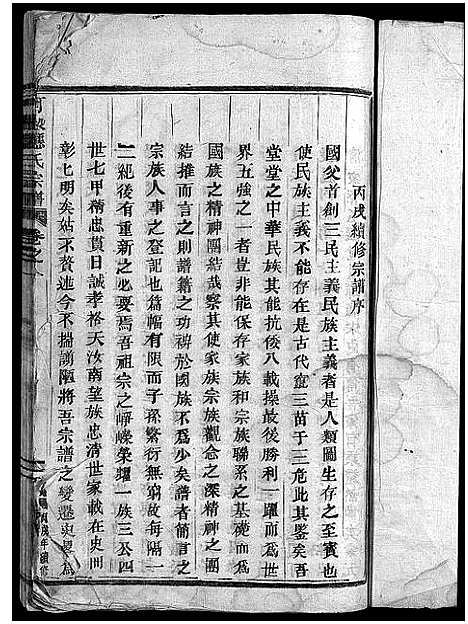 丙戌續修宗譜序
國父首創三民主義民族主義者是人類圖生存之至寶也
使民族主義不能存在是古代竄三苗于三危此其鑒矣吾
堂堂之中華民族其能抗倭八載操故後勝利一躍而為世
界五強之一者豈非能保存家族和宗族聯系之基礎而為
國族之精神團結哉察其使家族宗族觀念之深精神之團
結推而言之則譜籍之功裨於國族不為少矣譜者簡言之
宗族人事之登記也為篇幅有限而子孫繁衍無窮故每隔一
二紀後有重新之必要焉吾祖宗之崢嶸榮耀一族三公四
世七甲精忠貫日誠孝格天汝南望族忠清世家載在史冊
彰七明矣姑不贅述今不揣謭陋將吾宗譜之變遷與譽為
氏宗譜
卷之
戌年續修